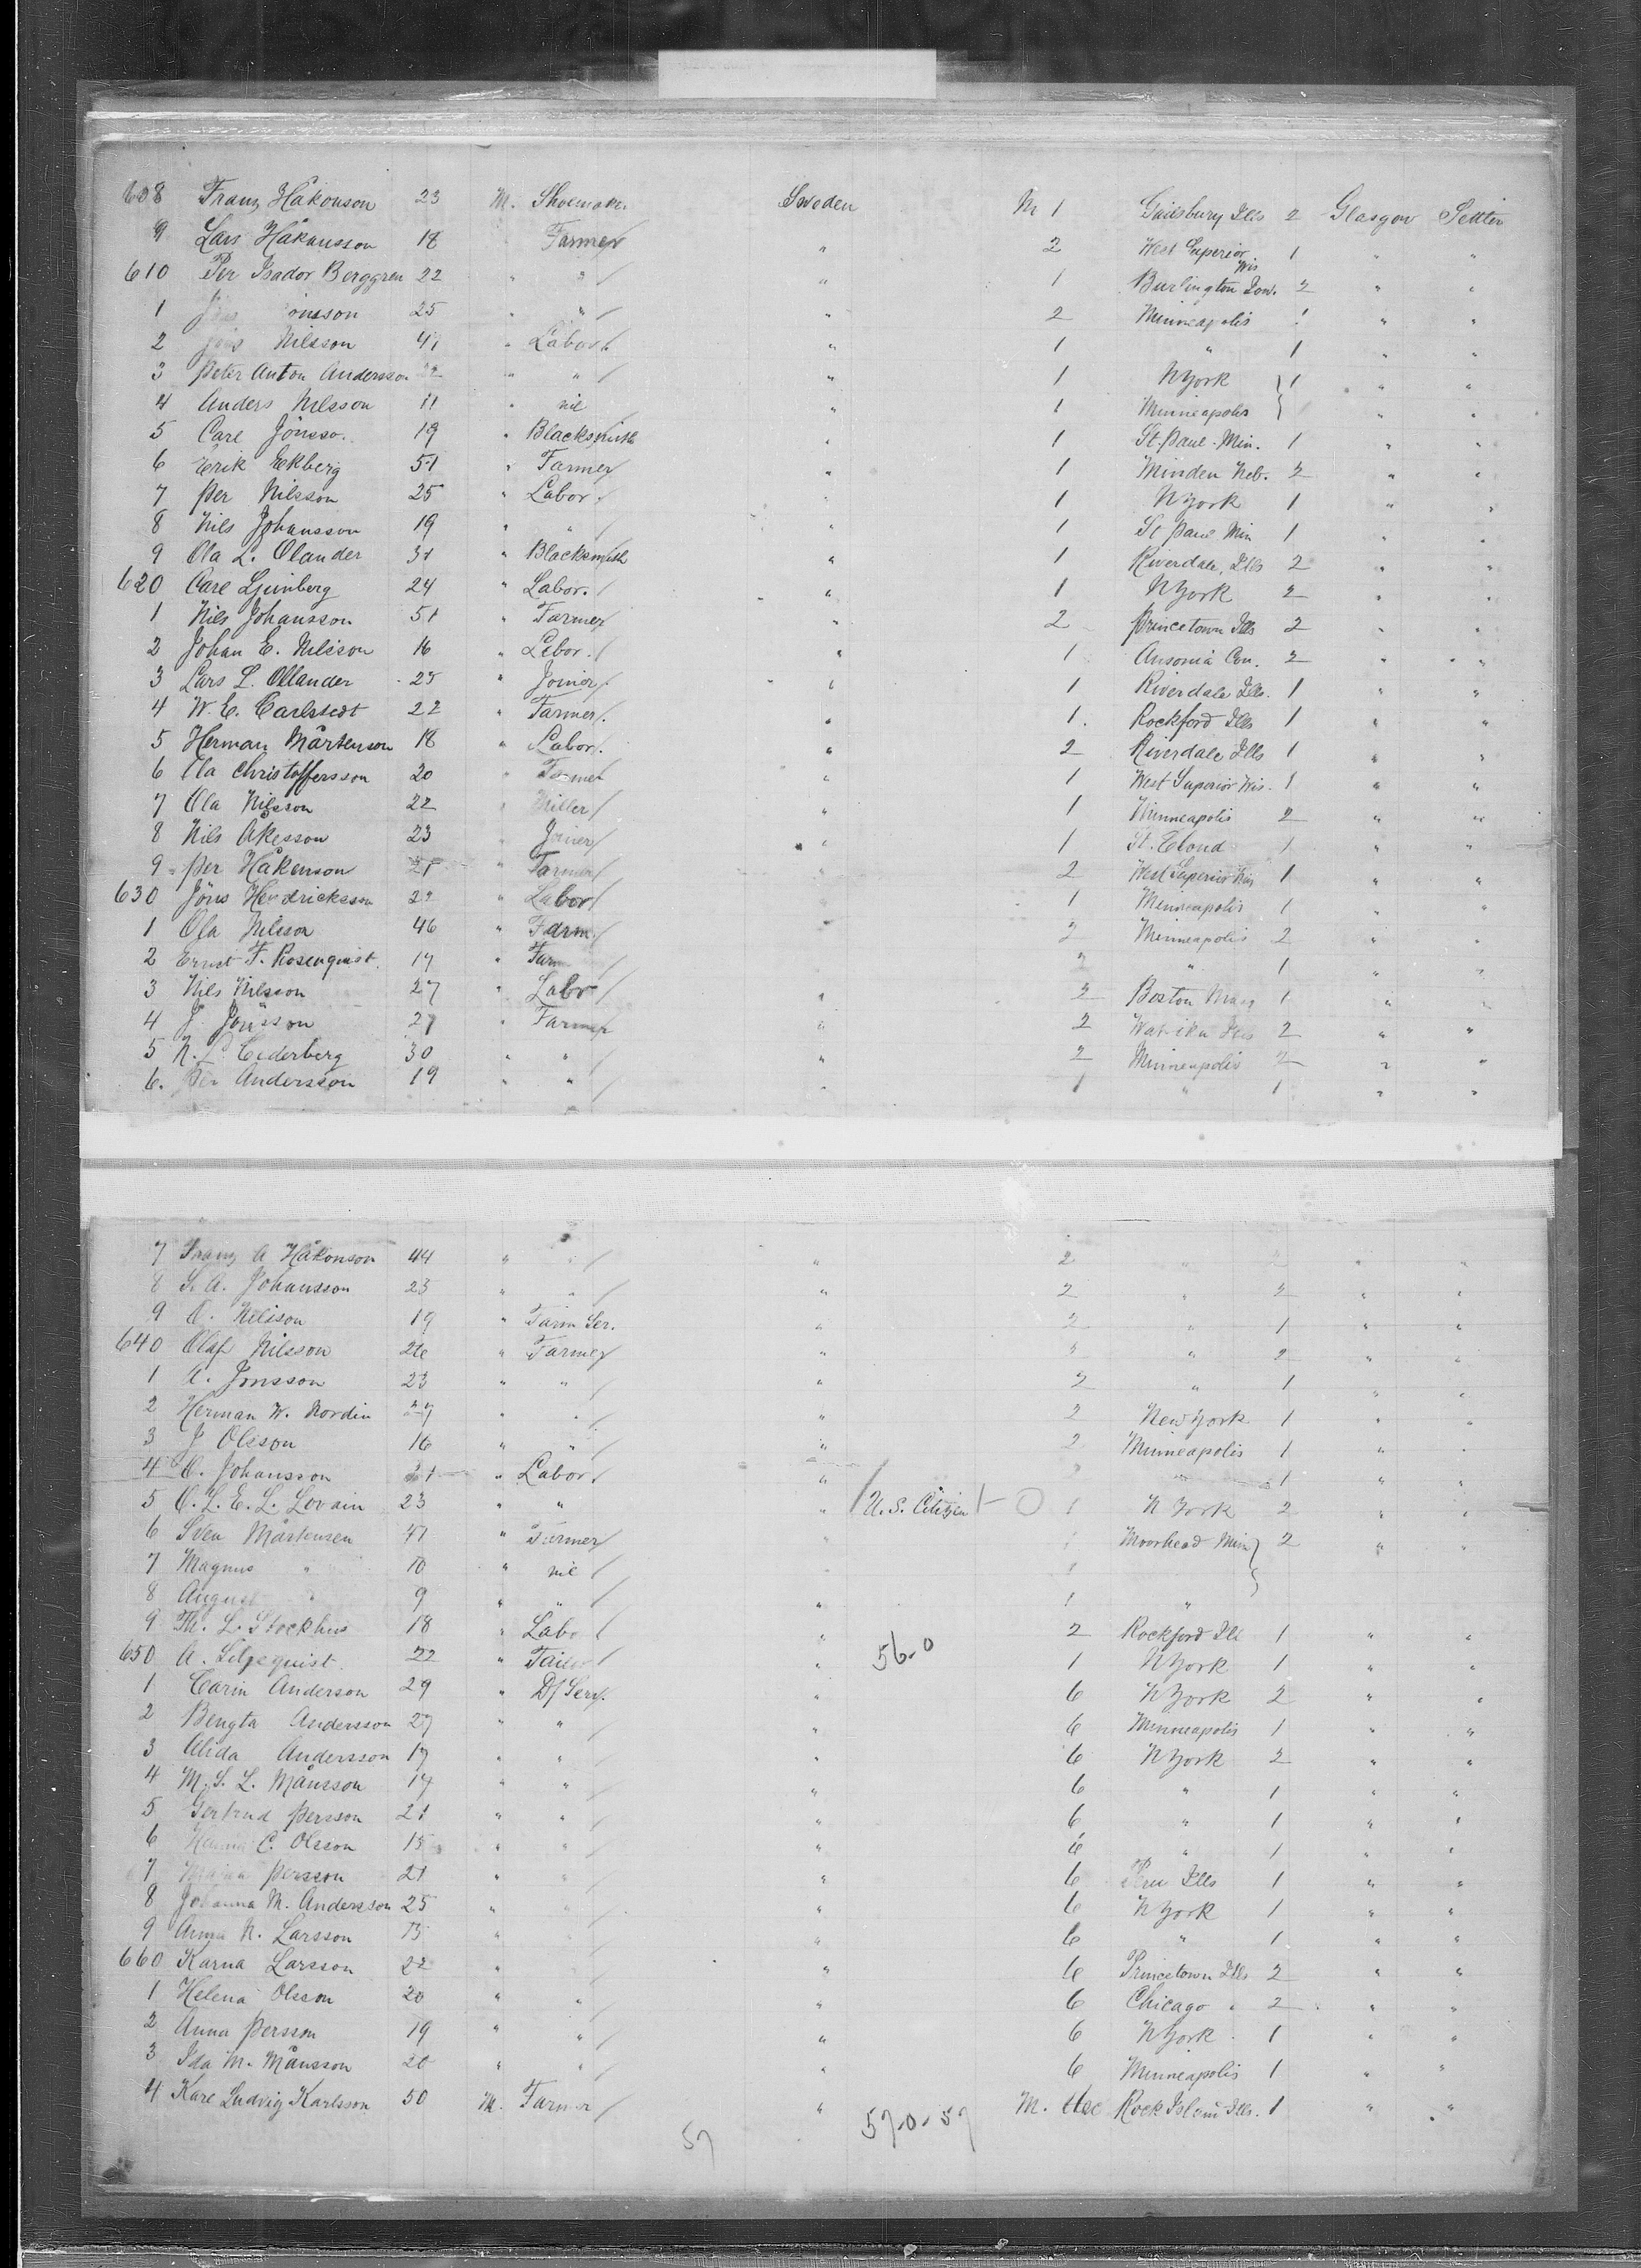 608 Franz Håkonson 23 M. Shoemaker Sweden M 1 Gailsbury Ills 2 Glasgow Settler
9 Lars Håkansson 18 Farmer " 2 West Superior Wis 1 " "
610 Per Isador Berggren 22 " " " 1 Burlington Iow. 2 " "
1 onsson 25 " " " 2 Minneapolis 1 " "
2 Nilsson 41 " Labor " 1 " 1 " "
3 Peter Anton Andersson " " " 1 N York 1 " "
4 Anders Nilsson 11 " nil " 1 Minneapolis " "
5 Carl Jönsso. 19 " Blacksmith " 1 St. Paul. Min. 1 " "
6 Erik Ekberg 51 " Farmer " 1 Minden Neb. 2 " "
7 Per Nilsson 25 " Labor. " 1 N York 1 " "
8 Nils Johansson 19 " " " 1 St Paul Min 1 " "
9 Ola L. Olander 31 " Blacksmith " 1 Riverdale, Ills 2 " "
620 Carl Ljunberg 24 " Labor. " 1 N York 2 " "
1 Nils Johansson 51 " Farmer " 2 Princetown Ills 2 " "
2 Johan E. Nilsson 16 " Labor. " 1 Ansonia Con. 2 " "
3 Lars L. Ollander 25 " Joiner " 1 Riverdale Ills. 1 " "
4 W. E. Carlstedt 22 " Farmer. " 1. Rockford Ills 1 " "
5 Herman Mårtenson 18 " Labor. " 2 Riverdale Ills 1 " "
6 Ola Christoffersson 20 " Farmer " 1 West Superior Wis. 1 " "
7 Ola Nilsson 22 " Miller " 1 Minneapolis 2 " "
8 Nils Åkesson 23 " Joiner " 1 St. Cloud 1 " "
9 Per Håkenson 21 " Farmer " 2 West Superior Wis 1 " "
630 Jöns Hendricksson 22 " Labor " 1 Minneapolis 1 " "
1 Ola Nilsson 46 " Farm. " 2 Minneapolis 2 " "
2 Ernst F. Rosenquist. 17 " Farm 2 " 1 " "
3 Nils Nilsson 27 " Labor " 2 Boston Mass 1 " "
4 J. Jönsson 27 " Farmer " 2 Ills 2 " "
5 N. L. Cederberg 30 " " " 2 Minneapolis 2 " "
6. Per Andersson 19 " " " 1 " 1 " "
7 Franz A Håkonson 44 " " " 2 " 2 " "
8 S. A. Johansson 23 " " " 2 " 2 " "
9 O. Nilsson 19 " Farm Ser. " 2 " 1 " "
640 Olof Nilsson 26 " Farmer " 2 " 2 " "
1 A. Jonsson 23 " " " 2 " 1 " "
2 Herman W. Nordin 27 " " " 2 New York 1 " "
3 J Olsson 16 " " " 2 Minneapolis 1 " "
4 O. Johansson 21 " Labor. " " 1 " "
5 O. L. E. L. Lovain 23 " " " U. S. Citizen 1 N York 2 " "
6 Sven Mårtensen 41 " Farmer " 1 Moorhead Min 2 " "
7 Magnus " 10 " nil " 1
8 August " 9 " " " 1 "
9 Th. L. Stockhus 18 " Labo " 2 Rockford Ill 1 " "
56-0
650 A. Liljequist. 22 " Tailor " 1 N York 1 " "
1 Carin Anderson 29 " D/ Serv. " 6 N York 2 " "
2 Bengta Andersson 27 " " " 6 Minneapolis 1 " "
3 Alida Andersson 17 " " " 6 N York 2 " "
4 M. S. L. Månsson 17 " " " 6 " 1 " "
5 Gertrud Persson 21 " " " 6 " 1 " "
6 Hanna C. Olsson 15 " " " 6 " 1 " "
7 Persson 21 " " " 6 Peru Ills 1 " "
8 Johanna M. Andersson 25 " " " 6 N York 1 " "
9 Anna N. Larsson 15 " " 6 " 1 " "
660 Karna Larsson 22 " " 6 Princetown Ills 2 " "
1 Helena Olsson 20 " " " 6 Chicago " 2 " "
2 Anna Persson 19 " " " 6 N York 1 " "
3 Ida M. Månsson 20 " " " 6 Minneapolis 1 " "
4 Karl Ludvig Karlsson 50 M. Farmer " M. Rock Island Ills. 1 " "
57 57-0-57